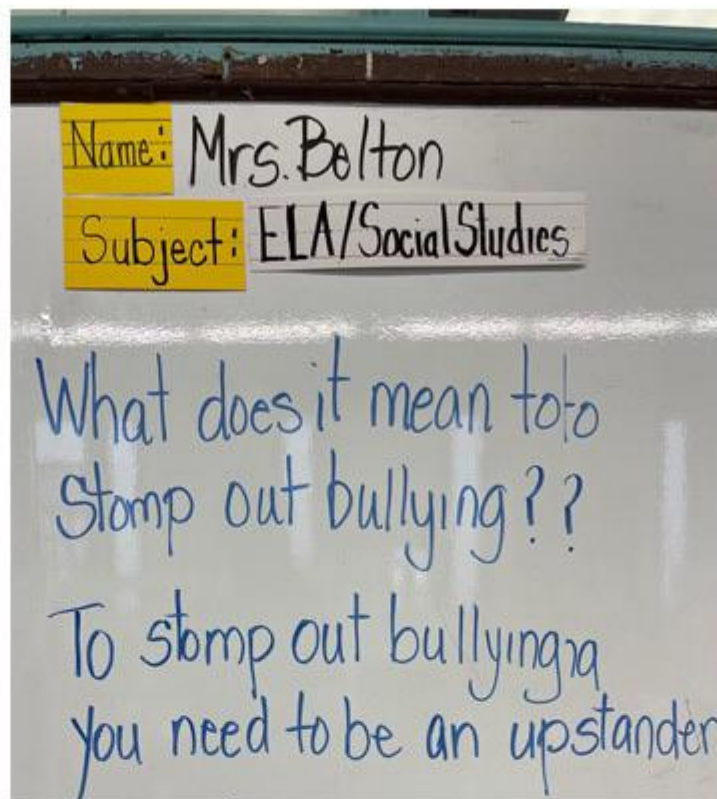 Name: Mrs. Belton
Subject: ELA/Social Studies
What does it mean toto
Stomp out bullying??
To stomp out bullying
you need to be an upstander